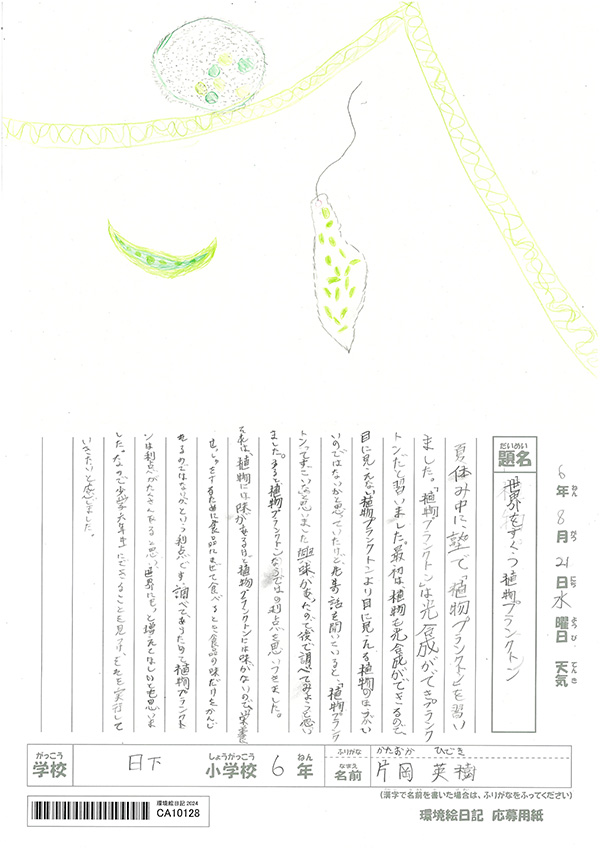 6年 8月 21日 水曜日 天気
ねん がつ にち ようび てんき
だいめい
題名
世界をすくう植物プランクトン
夏休み中に、塾で「植物プランクトン」を習い
ました。「植物プランクトンは光合成ができプランク
トンだと習いました。最初は、植物も光合成ができるので、
目に見えない植物プランクトンより目に見える植物のほうがい
いのではないかと思っていたけど、先生の話を聞いていると、「植物プランク
トンってすごいな」と思いました。興味がわいたので後で調べてみようと思い
ました。すると植物プランクトンならではの利点を思いつきました。
それは、植物には味があるけど植物プランクトンには味がないので栄養
せっしゅをするために食品にまぜて食べると食品の味だけをかんじ
れるのではないかという利点です。調べてみたので植物プランクト
ンは利点がたくさんあると思い、世界にもっと増えてほしいとも思いま
した。なので小学六年生にできることを見つけ、それを実行して
いきたいと感じました。
がっこう
学校
日下
しょうがっこう
小学校
6
ねん
年
ふりがな
かたおか ひでき
なまえ
名前
片岡 英樹
(漢字で名前を書いた場合は、ふりがなをふってください)
環境絵日記 2024
CA10128
環境絵日記 応募用紙